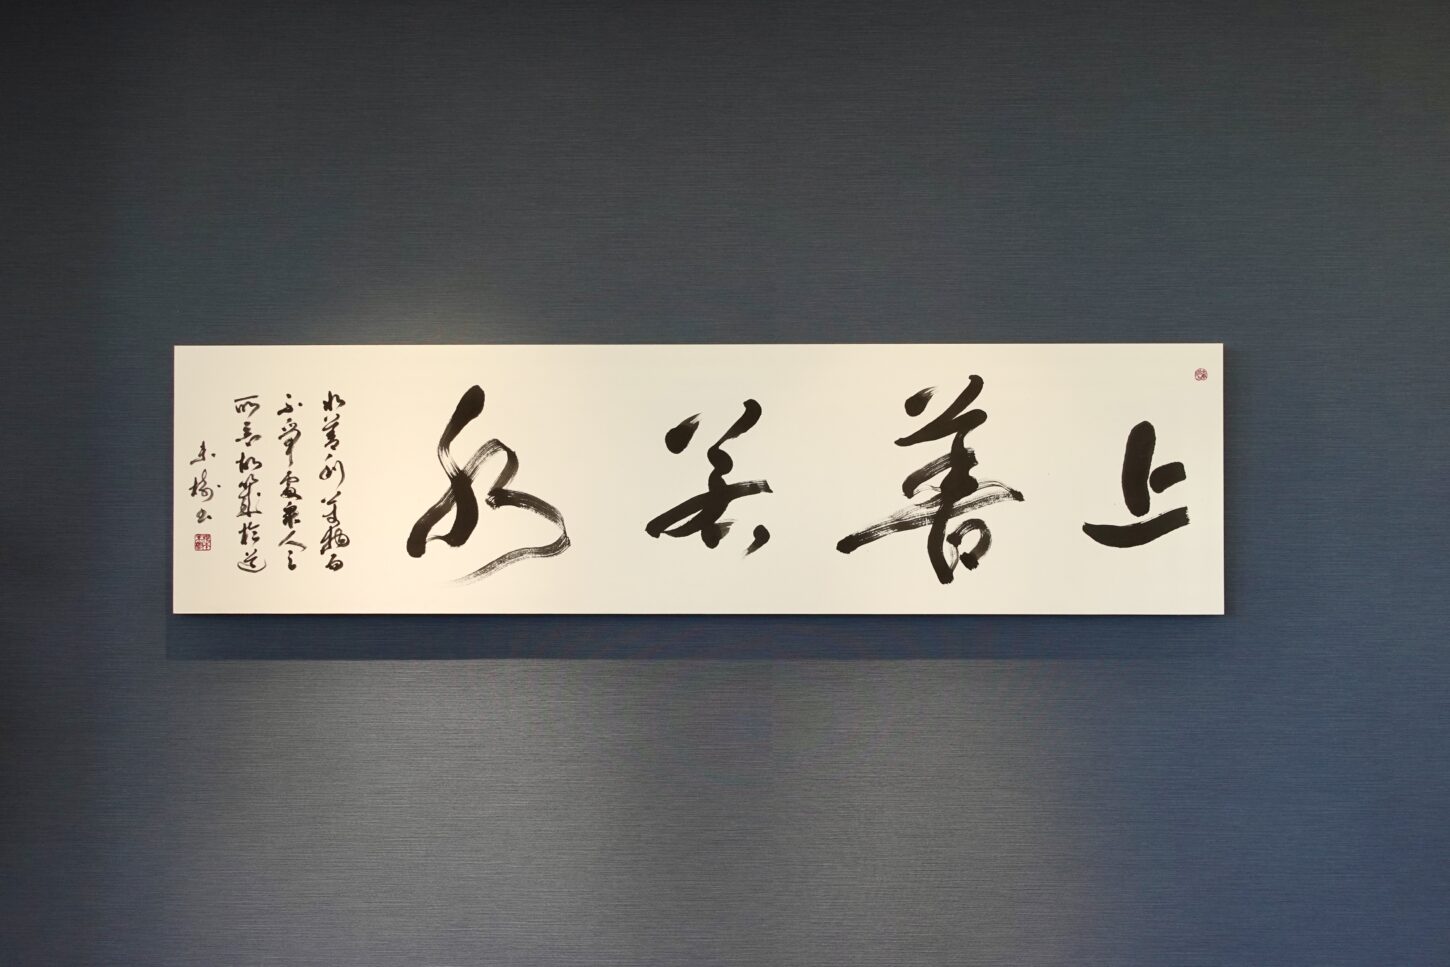 上善若水
水善利萬物而
不爭處衆人之
所惡故幾於道
未槫書